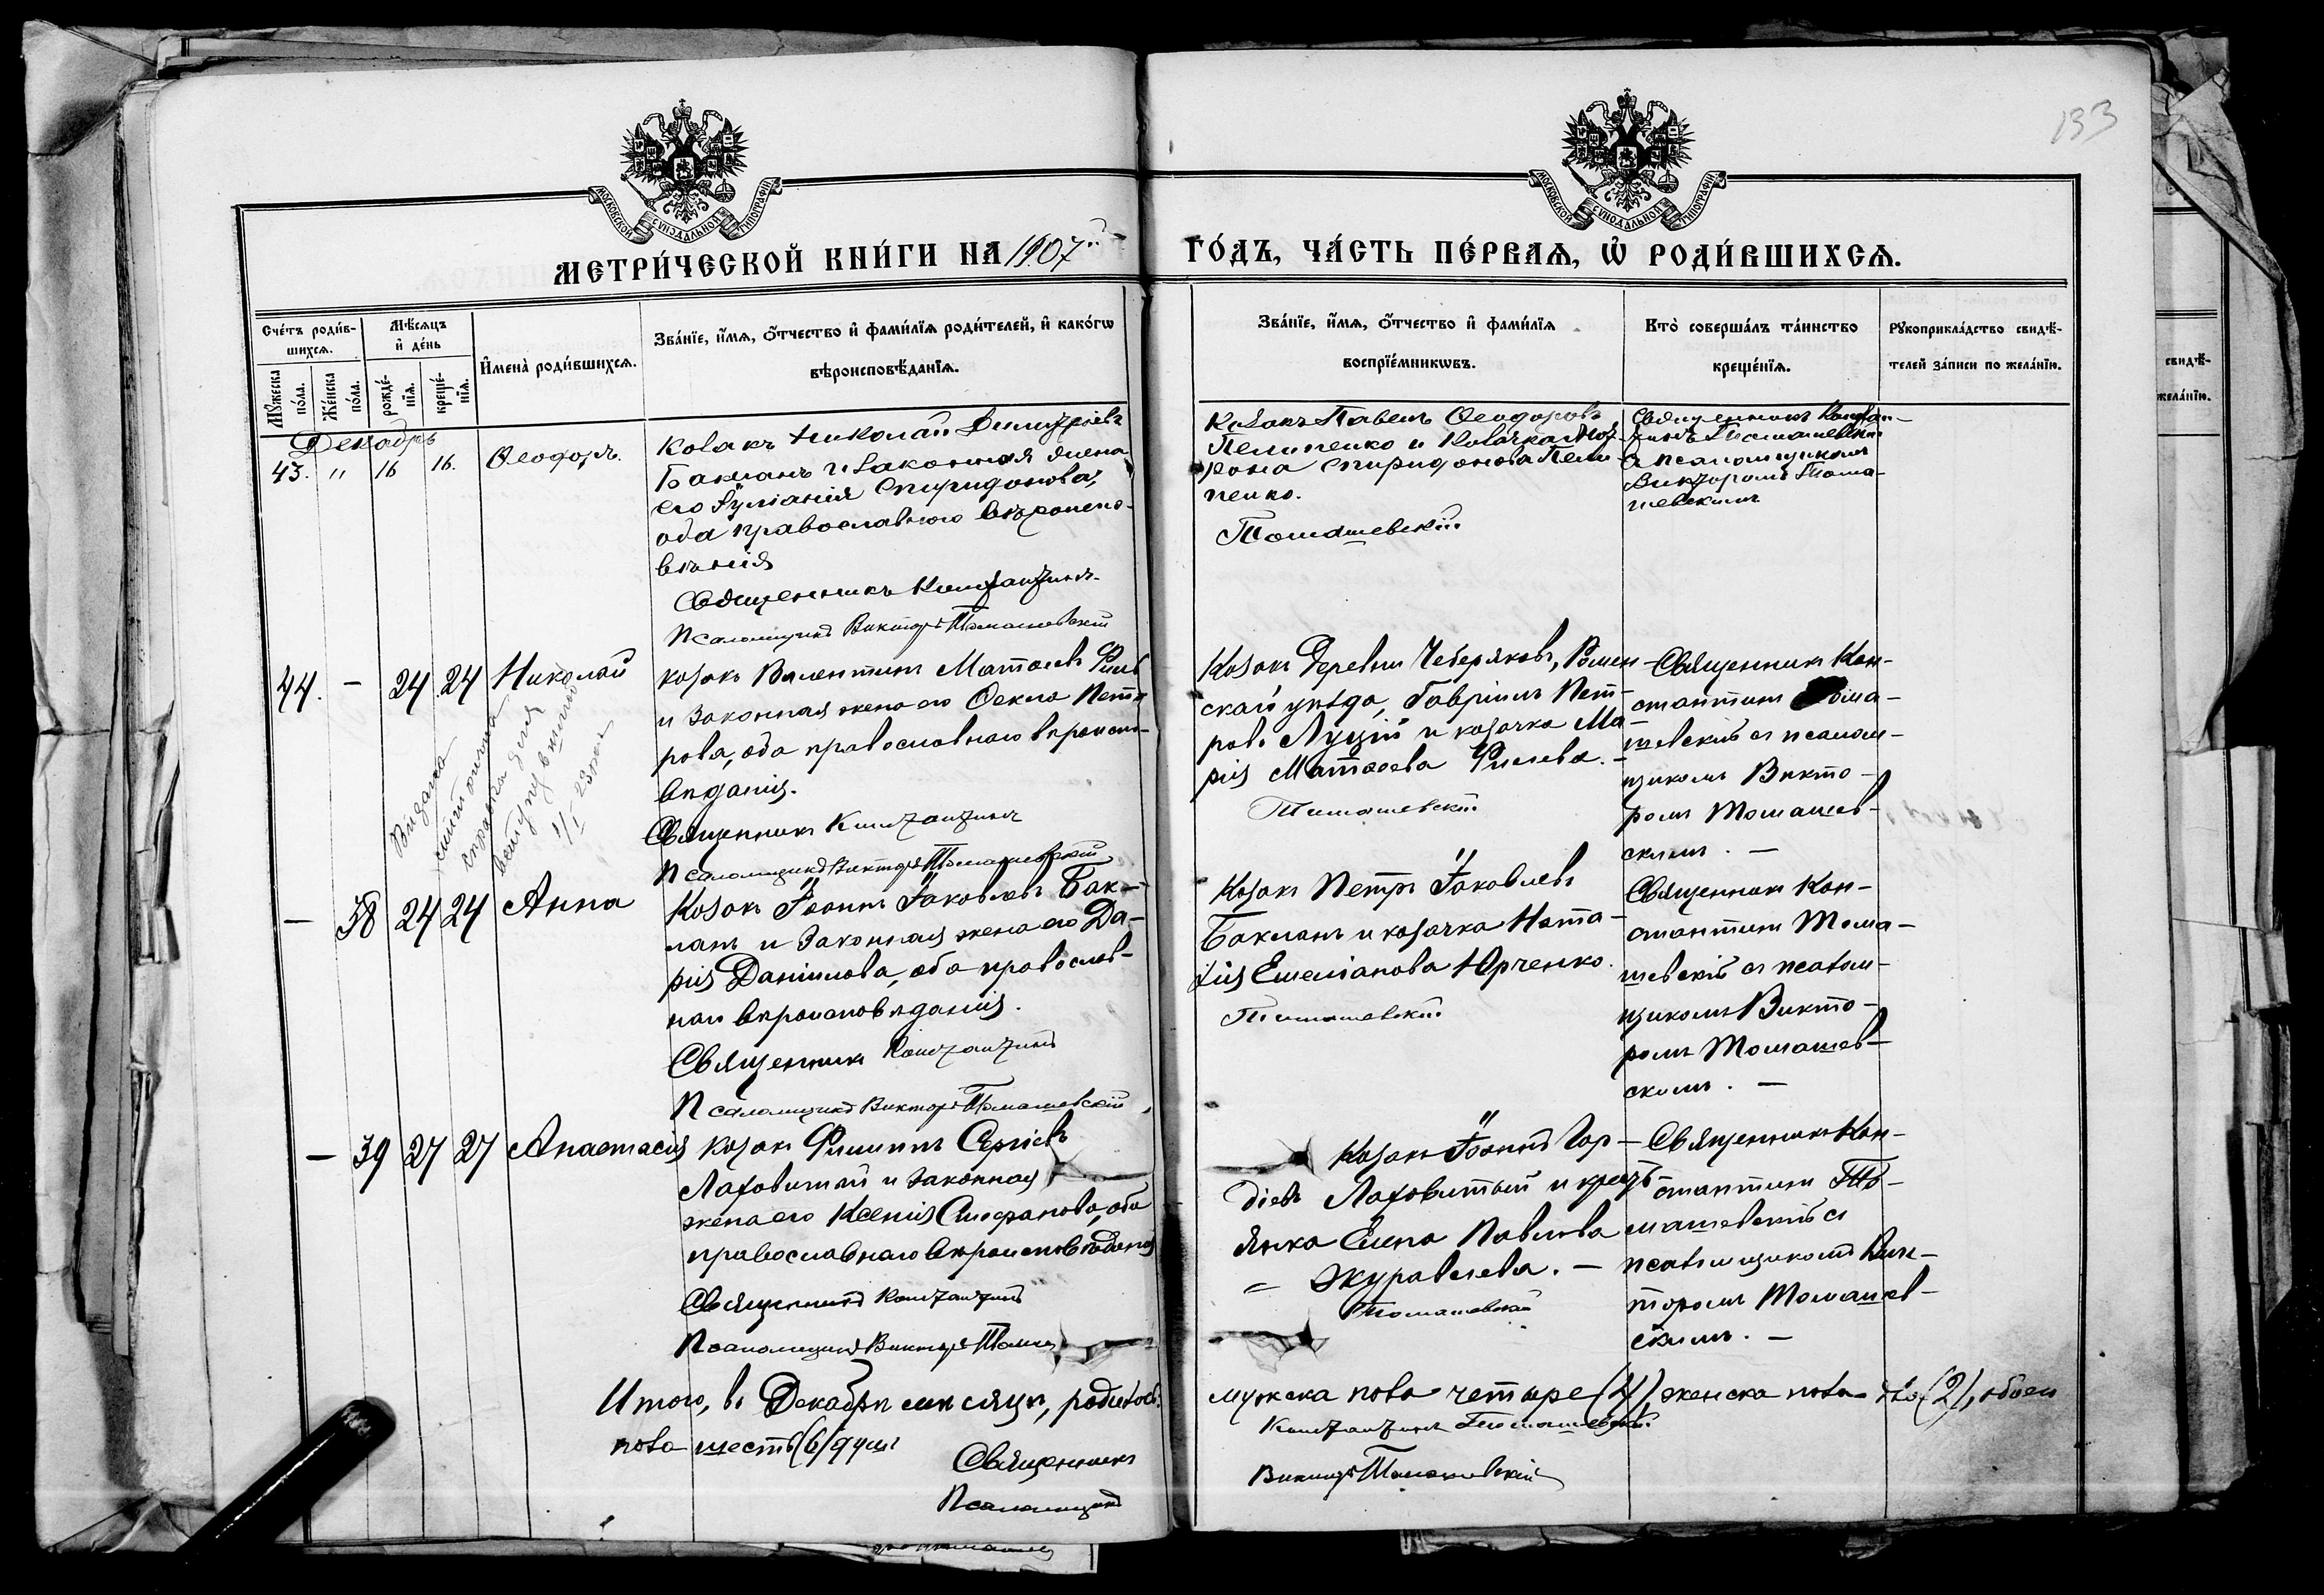 133
МОСКОВСКОЙ СѴНОДАЛЬНОЙ ТИПОГРАФІИ
МОСКОВСКОЙ СѴНОДАЛЬНОЙ ТИПОГРАФІИ
МЕТРИ́ЧЕСКОЙ КНИ́ГИ НА 1907й ГО́ДЪ, ЧА́СТЬ ПЕ́РВАѦ, Ѡ҆ РОДИ́ВШИХСѦ.
Сче́тъ роди́в-
шихсѧ.
Мꙋ́жеска
по́ла.
Же́нска
по́ла.
Мѣ́сѧцъ
и҆ де́нь
рожде́-
нїѧ.
креще́-
нїѧ.
И҆мена̀ роди́вшихсѧ.
Зва́нїе, и҆́мѧ, ѻ҆́тчество и҆ фами́лїѧ роди́телей, и҆ како́гѡ
вѣроисповѣ́данїѧ.
Зва́нїе, и҆́мѧ, ѻ҆́тчество и҆ фами́лїѧ
воспрїе́мникѡвъ.
Кто̀ соверша́лъ та́инство
креще́нїѧ.
Рꙋкоприкла́дство свидѣ́-
телей за́писи по жела́нїю.
Декабрь
43. " 16 16. Ѳеодоръ.
Козакъ Николай Димитріевъ
Бакланъ и законная жена
его Іуліанія Спиридонова,
оба православного вѣроиспо-
вѣданія
Священникъ Константинъ
Псаломщикъ Викторъ Томашевскій
Козакъ Павелъ Ѳеодоровъ
Пелипенко и козачка Мат-
рона Спиридонова Пели-
пенко.
Томашевскій
Священникъ Констан-
тинъ Томашевскій
съ псаломщикомъ
Викторомъ Тома-
шевскимъ
44. – 24 24 Николай
козакъ Валентинъ Матѳеевъ
и законная жена его Ѳекла Пет-
рова, оба православнаго вѣроиспо-
вѣданія.
Священникъ Константинъ
Псаломщикъ Викторъ Томашевскій
Козакъ деревни Чеберяковъ, Ромен-
скаго уѣзда, Гавріилъ Пет-
ровъ Луцій и козачка Ма-
рія Матѳеева
Томашевскій
Священникъ Кон-
стантинъ Тома-
шевскій съ псалом-
щикомъ Викто-
ромъ Томашев-
скимъ. –
Видана
справка для
23 года
– 38 24 24 Анна
Козакъ Іоаннъ Іаковлевъ Бак-
ланъ и законная жена его Да-
рія Даніилова, оба православ-
наго вѣроисповѣданія.
Священникъ Константинъ
Псаломщикъ Викторъ Томашевскій
Козакъ Петръ Іаковлевъ
Бакланъ и козачка Ната-
лія Емеліанова Юрченко.
Томашевскій
Священникъ Кон-
стантинъ Тома-
шевскій съ псалом-
щикомъ Викто-
ромъ Томашев-
скимъ. –
– 39 27 27 Анастасія
козакъ Филиппъ Сергіевъ
Лаховитый и законная
жена его Ксенія Стефанова, оба
православнаго вѣроисповѣданія
Священникъ Константинъ
Псаломщикъ Викторъ
Козакъ Іоаннъ Гор-
діевъ Лаховитый и кресть-
янка Елена Павлова
Журавлева. –
Томашевскій
Священникъ Кон-
стантинъ То-
машевскій съ
псаломщикомъ Вик-
торомъ Томашев-
скимъ. –
Итого, въ Декабрѣ мѣсяцѣ, родилось: мужска пола четыре (4), женска пола два (2), обоего
пола шесть (6) душъ
Священникъ Константинъ Томашевскій
Псаломщикъ Викторъ Томашевскій
свидѣ́-
жела́нїю.